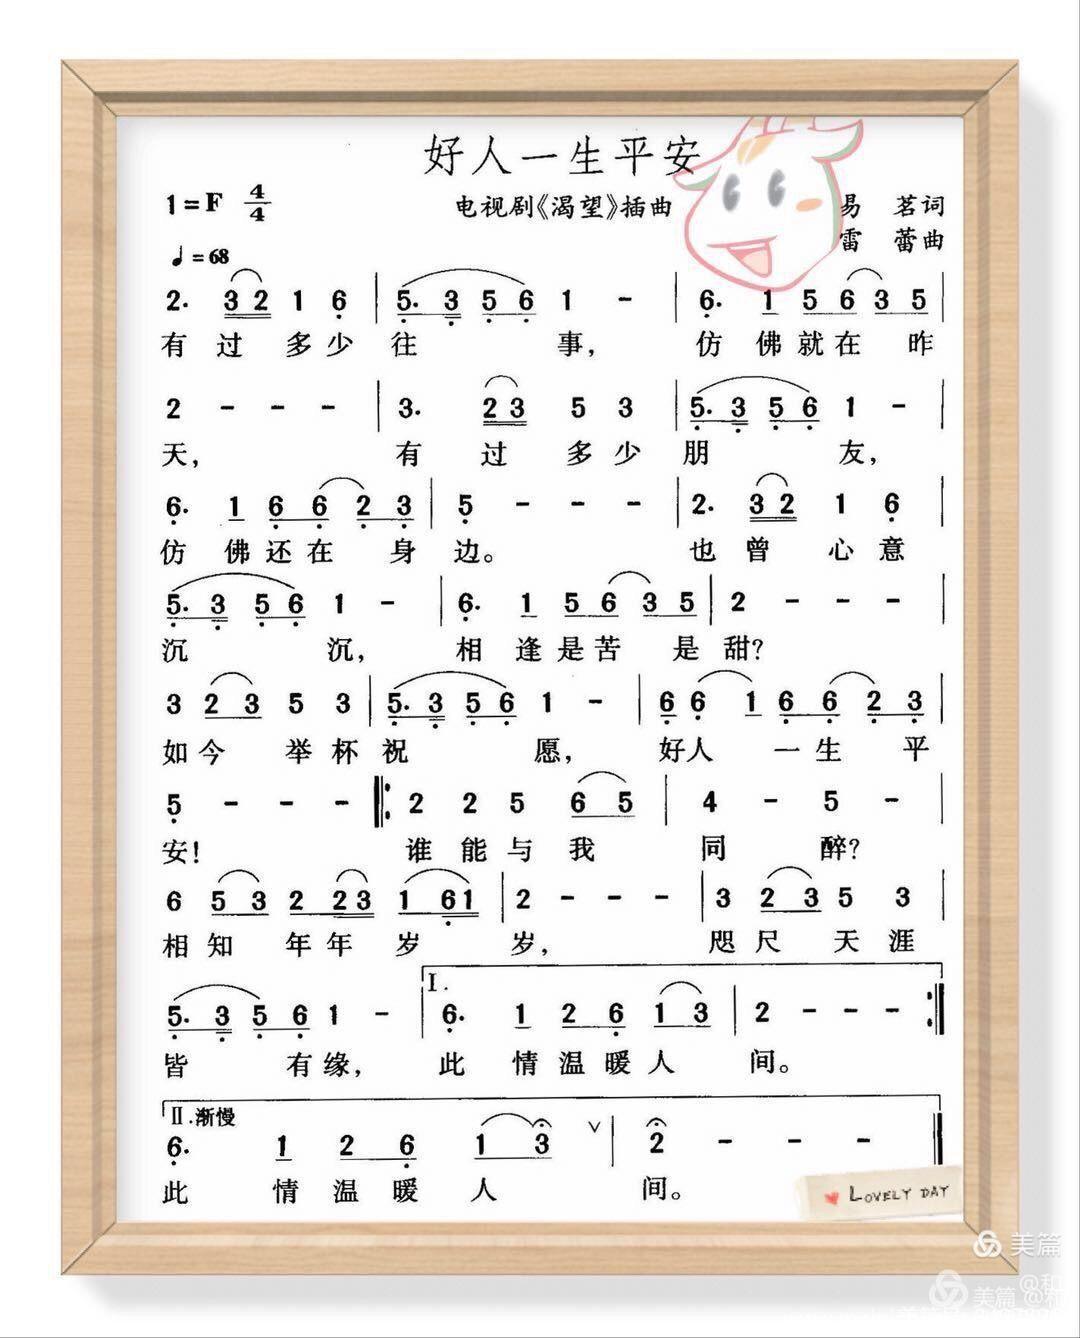 好人一生平安
1=F 4/4
电视剧《渴望》插曲
易 茗词
雷 蕾曲
♩=68
2. 3 2 1 6 | 5. 3 5 6 1 - | 6. 1 5 6 3 5 |
有 过 多 少 往 事， 仿 佛 就 在 昨
2 - - - | 3. 2 3 5 3 | 5. 3 5 6 1 - |
天， 有 过 多 少 朋 友，
6. 1 6 6 2 3 | 5 - - - | 2. 3 2 1 6 |
仿 佛 还 在 身 边。 也 曾 心 意
5. 3 5 6 1 - | 6. 1 5 6 3 5 | 2 - - - |
沉 沉， 相 逢 是 苦 是 甜？
3 2 3 5 3 | 5. 3 5 6 1 - | 6 6 1 6 6 2 3 |
如 今 举 杯 祝 愿， 好 人 一 生 平
5 - - - ‖: 2 2 5 6 5 | 4 - 5 - |
安！ 谁 能 与 我 同 醉？
6 5 3 2 2 3 1 6 1 | 2 - - - | 3 2 3 5 3 |
相 知 年 年 岁 岁， 咫 尺 天 涯
I.
5. 3 5 6 1 - | 6. 1 2 6 1 3 | 2 - - - :‖
皆 有 缘， 此 情 温 暖 人 间。
II.渐慢
6. 1 2 6 1 3 ∨ | 2 - - - ‖
此 情 温 暖 人 间。
LOVELY DAY
美篇
美篇 @和